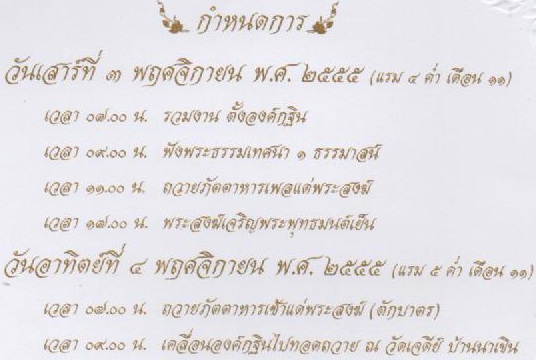 กำหนดการ
วันเสาร์ที่ ๓ พฤศจิกายน พ.ศ. ๒๕๕๕ (แรม ๔ ค่ำ เดือน ๑๑)
เวลา ๐๗.๐๐ น. รวมงาน ตั้งองค์กฐิน
เวลา ๐๙.๐๐ น. ฟังพระธรรมเทศนา ๑ ธรรมาสน์
เวลา ๑๑.๐๐ น. ถวายภัตตาหารเพลแด่พระสงฆ์
เวลา ๑๗.๐๐ น. พระสงฆ์เจริญพระพุทธมนต์เย็น
วันอาทิตย์ที่ ๔ พฤศจิกายน พ.ศ. ๒๕๕๕ (แรม ๕ ค่ำ เดือน ๑๑)
เวลา ๐๗.๐๐ น. ถวายภัตตาหารเช้าแด่พระสงฆ์ (ตักบาตร)
เวลา ๐๙.๐๐ น. เคลื่อนองค์กฐินไปทอดถวาย ณ วัดเจดีย์ บ้านนาเขิน